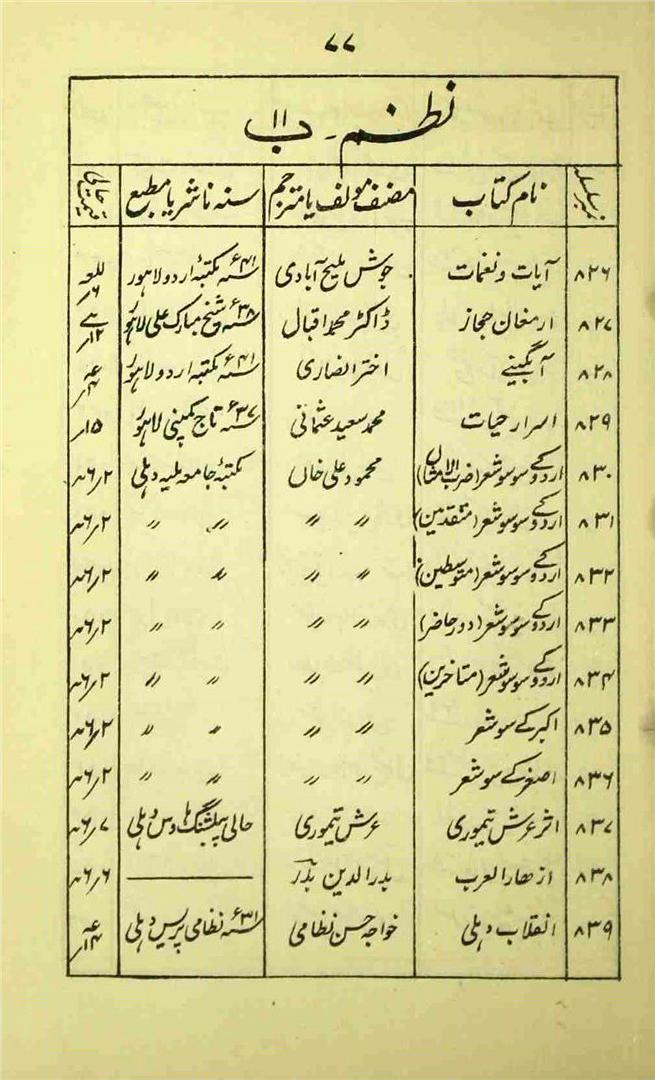 ۷۷
نظم - ب ۱۱
نمبر سلسلہ نام کتاب مصنف مولف یا مترجم سنہ ناشر یا مطبع قیمت حالی
۸۲۶ آیات و نغمات جوش ملیح آبادی سنہ ۴۱ء مکتبۂ اردو لاہور
۸۲۷ ارمغان حجاز ڈاکٹر محمد اقبال سنہ ۳۸ء شیخ مبارک علی لاہور
۸۲۸ آبگینے اختر انصاری سنہ ۴۱ء مکتبۂ اردو لاہور
۸۲۹ اسرار حیات محمد سعید عثمانی سنہ ۳۷ء تاج کمپنی لاہور ۱۵ار
۸۳۰ اردو کے سو سو شعر (ضرب الامثال) محمود علی خاں مکتبۂ جامعہ ملیہ دہلی ۲ر۶
۸۳۱ اردو کے سو سو شعر (متقدمین) 〃 〃 〃 〃 ۲ر۶
۸۳۲ اردو کے سو سو شعر (متوسطین) 〃 〃 〃 〃 ۲ر۶
۸۳۳ اردو کے سو سو شعر (دور حاضر) 〃 〃 〃 〃 ۲ر۶
۸۳۴ اردو کے سو سو شعر (متاخرین) 〃 〃 〃 〃 ۲ر۶
۸۳۵ اکبر کے سو شعر 〃 〃 〃 〃 ۲ر۶
۸۳۶ اصغر کے سو شعر 〃 〃 〃 〃 ۲ر۶
۸۳۷ اثر عرش تیموری عرش تیموری حالی پبلشنگ ہاوس دہلی ۷ر۶
۸۳۸ ازھار العرب بدر الدین بدر ——— ۶ر۶
۸۳۹ انقلاب دہلی خواجہ حسن نظامی سنہ ۳۱ء نظامی پریس دہلی